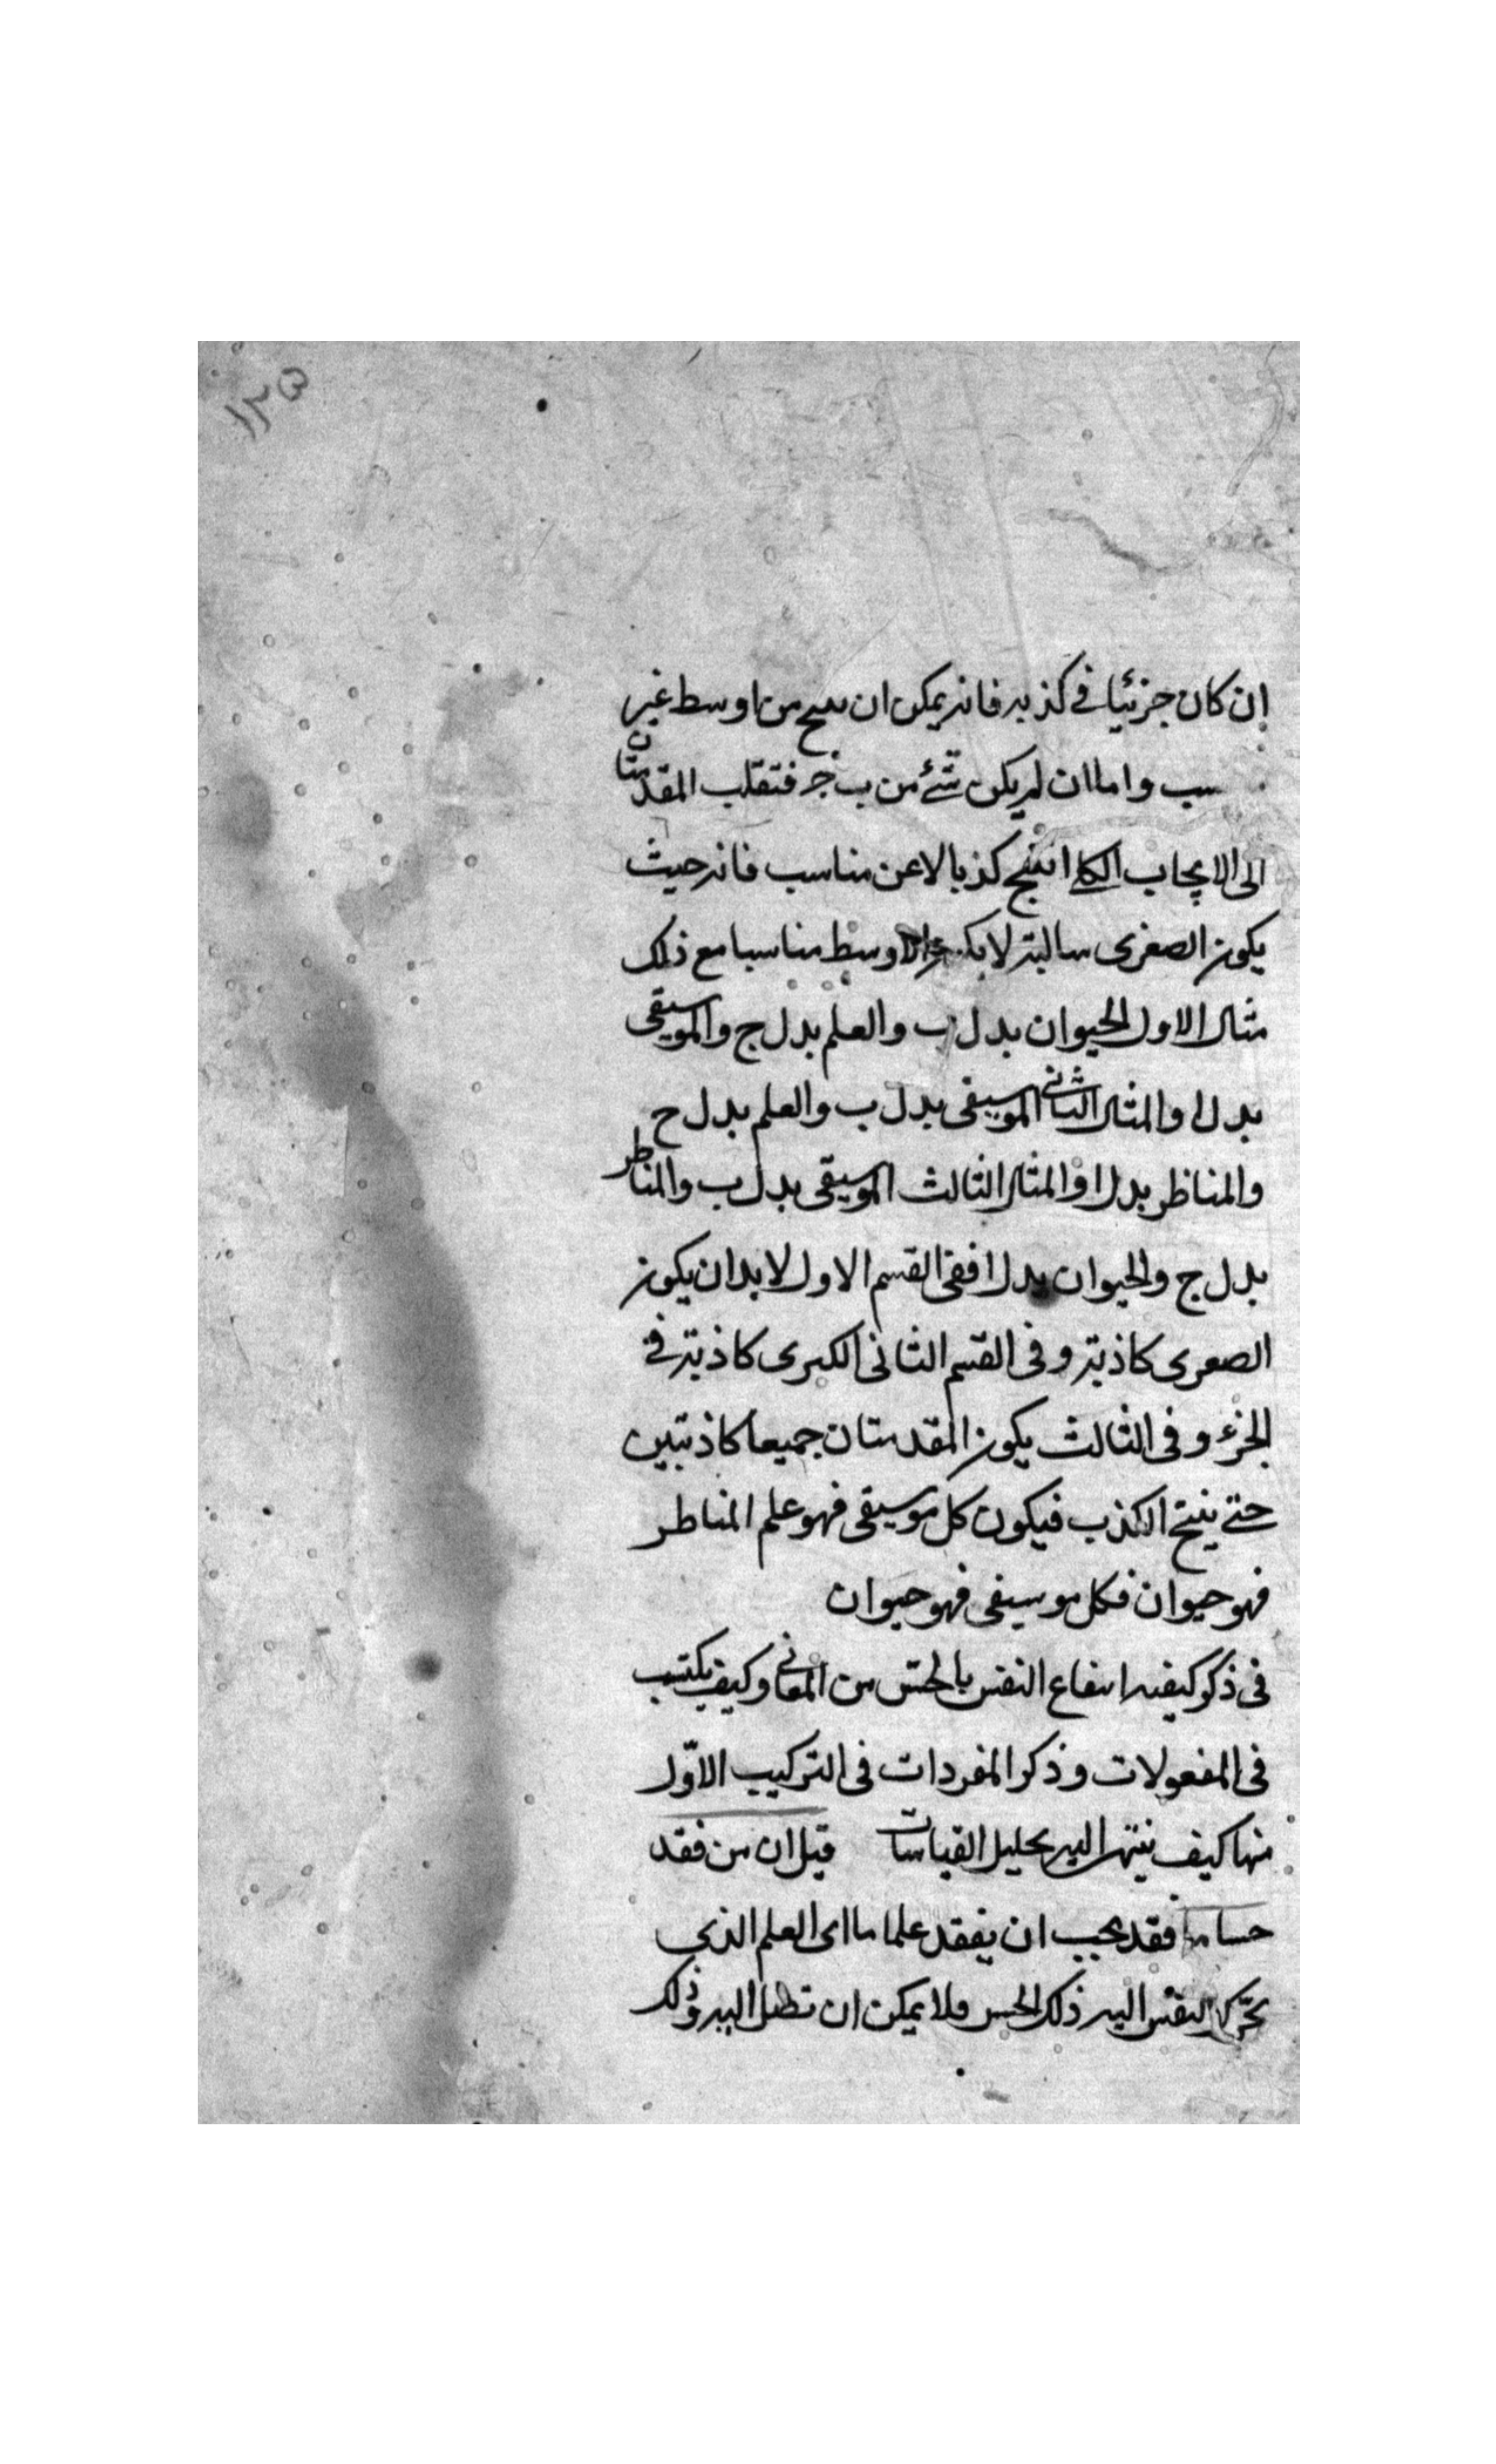 ١٢٥
إن كان جزئيا في كذبه فانه يمكن ان ينتج من اوسط غير
سب واما ان لم يكن شئ من ب ج فتقلب المقدمتان
الى الايجاب الكلي انتج كذبا لا عن مناسب فانه حيث
يكون الصغرى سالبة لا الاوسط مناسبا مع ذلك
مثال الاول الحيوان بدل ب والعلم بدل ج والموسيقى
بدل ا والمثال الثاني الموسيقى بدل ب والعلم بدل ج
والمناظر بدل ا والمثال الثالث الموسيقى بدل ب والمناظر
بدل ج والحيوان بدل ا ففى القسم الاول لا بد ان يكون
الصغرى كاذبة وفى القسم الثانى الكبرى كاذبة في
الجزء وفى الثالث يكون المقدمتان جميعا كاذبتين
حتى ينتج الكذب فيكون كل موسيقى فهو علم المناظر
فهو حيوان فكل موسيقى فهو حيوان
فى ذكر كيفيه انتفاع النفس بالحس من المعانى وكيف يكتسب
فى المفعولات وذكر المفردات فى التركيب الاوّل
منها كيف ينتهى اليه تحليل القياسات قيل ان من فقد
حسا ما فقد يجب ان يفقد علما ما اى العلم الذى
يحرّك النفس اليه ذلك الحس فلا يمكن ان تصل اليه وذلك